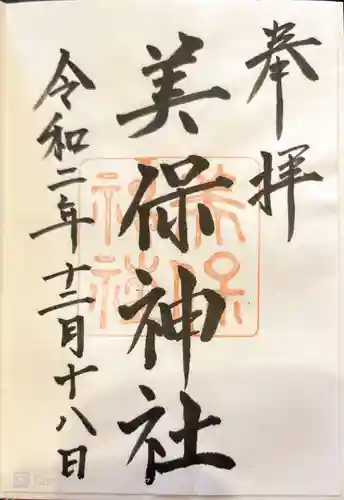 奉拝
美保神社
令和二年十二月十八日
美保
神社